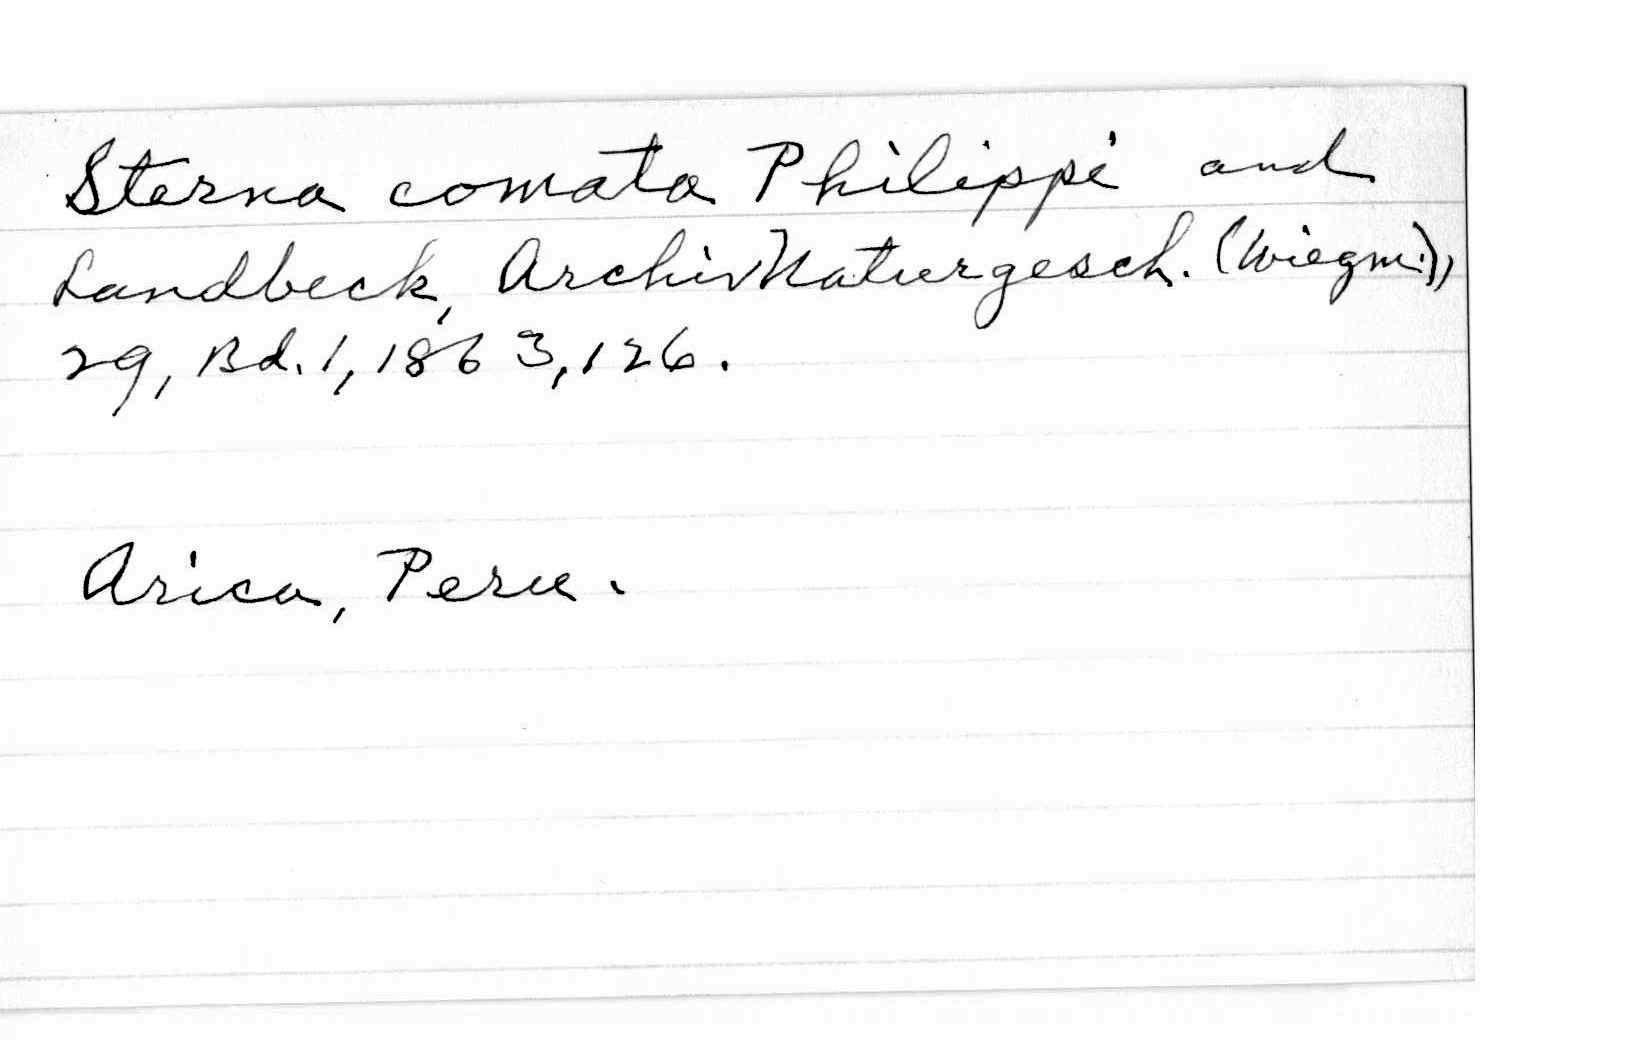 Sterna comata Philippi and
Landbeck, Archiv Naturgesch. (Wiegm.),
29, Bd. 1, 1863, 126.
Arica, Peru.